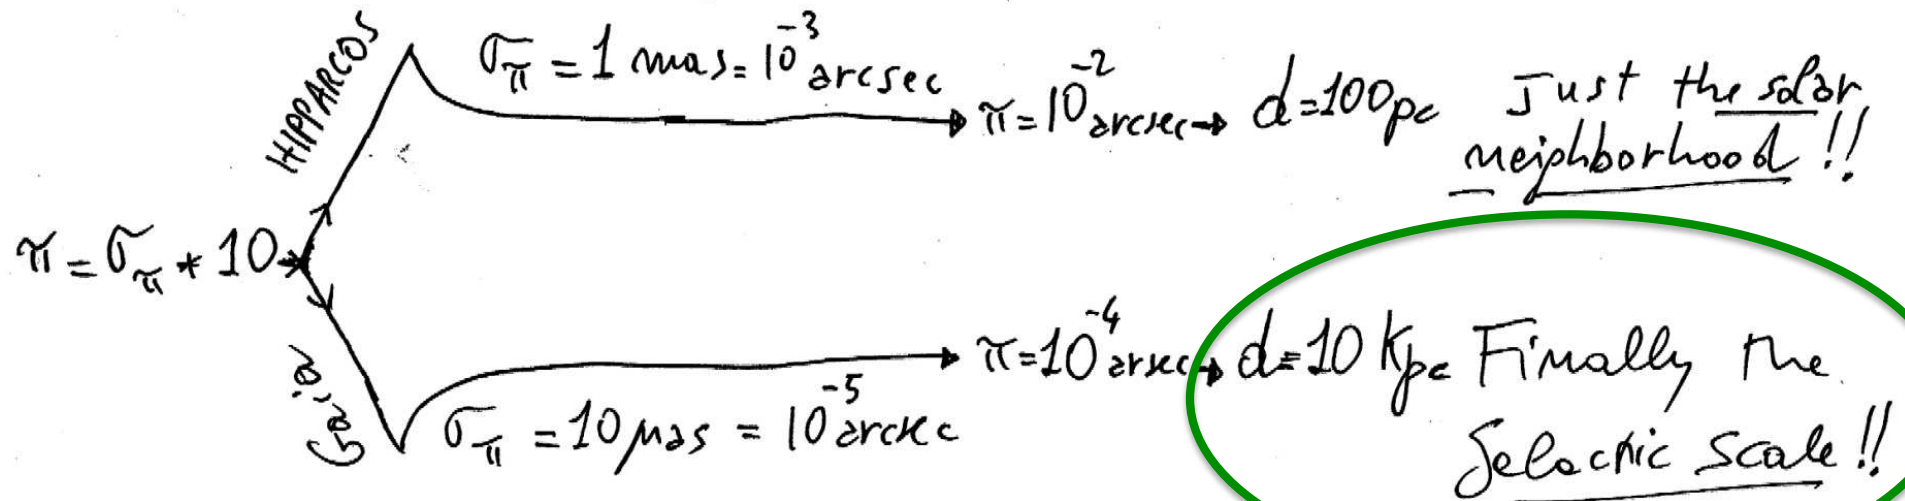 HIPPARCOS
σπ = 1 mas = 10⁻³ arcsec
π = 10⁻² arcsec → d = 100 pc Just the solar
neighborhood !!
π = σπ * 10
Gaia
σπ = 10 μas = 10⁻⁵ arcsec
π = 10⁻⁴ arsec → d = 10 Kpc Finally the
Galactic scale !!